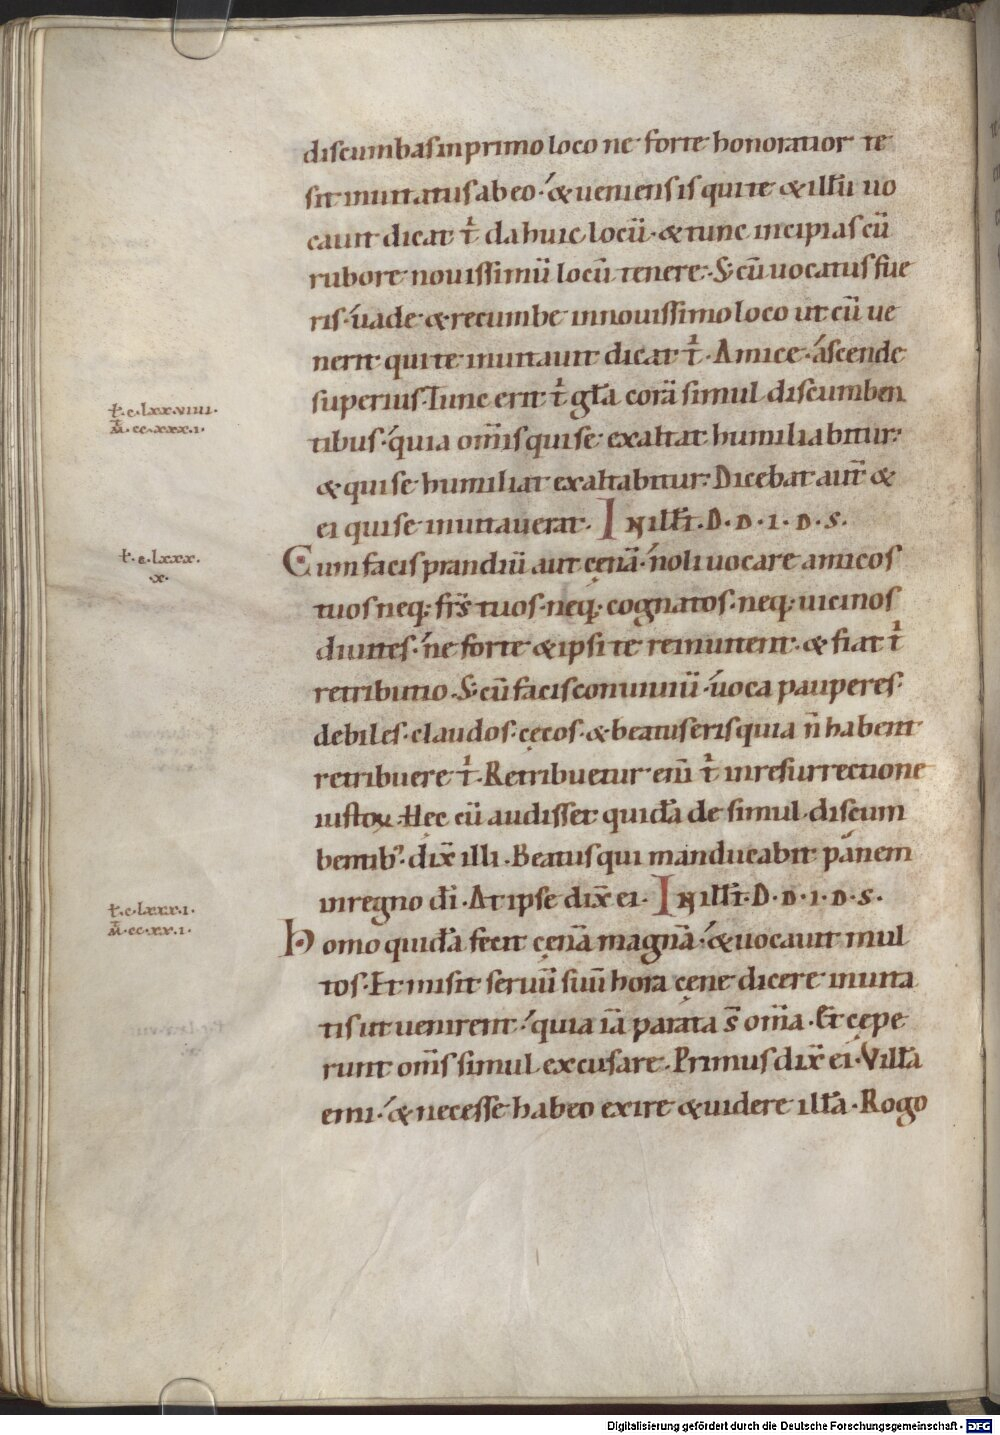 discumbas in primo loco ne forte honoratior te
sit inuitatus ab eo · & ueniens is qui te & illū uo
cauit dicat t̄ da huic locū · & tunc incipias cū
rubore nouissimū locū tenere · S; cū uocatus fue
ris · uade & recumbe in nouissimo loco ut cū ue
nerit qui te inuitauit dicat t̄ · Amice · ascende
superius · Tunc erit t̄ gl̄a corā simul discumben
tibus · quia om̄is qui se exaltat humiliabitur ·
& qui se humiliat exaltabitur · Dicebat aut̄ &
ei qui se inuitauerat · IN illō t̄ · D · n · i · d · s ·
Cum facis prandiū aut cęnā · noli uocare amicos
tuos neq; fr̄s tuos · neq; cognatos · neq; uicinos
diuites · ne forte & ipsi te reinuitent · & fiat t̄
retributio · S; cū facis conuiuiū · uoca pauperes ·
debiles · claudos · cęcos · & beatus eris quia n̄ habent
retribuere t̄ · Retribuetur eni͞ t̄ in resurrectione
iustoꝝ · Hęc cū audisset quidā de simul discum
bentib; · dix̄ illi · Beatus qui manducabit panem
in regno dī · At ipse dix̄ ei · IN illō t̄ · D · n · i · d · s ·
Homo quidā fecit cęnā magnā · & uocauit mul
tos · Et misit seruū suū hora cęne dicere inuita
tis ut uenirent · quia iā parata s̄ om̄a · Et cępe
runt om̄s simul excusare · Primus dix̄ ei · Villā
emi · & necesse habeo exire & uidere illā · Rogo
ł · c · lxx · viiii ·
M̄ · cc · xxx · i ·
ł · c · lxxx ·
· x ·
ł · c · lxxx · i ·
M̄ · cc · xx · i ·
Digitalisierung gefördert durch die Deutsche Forschungsgemeinschaft - DFG